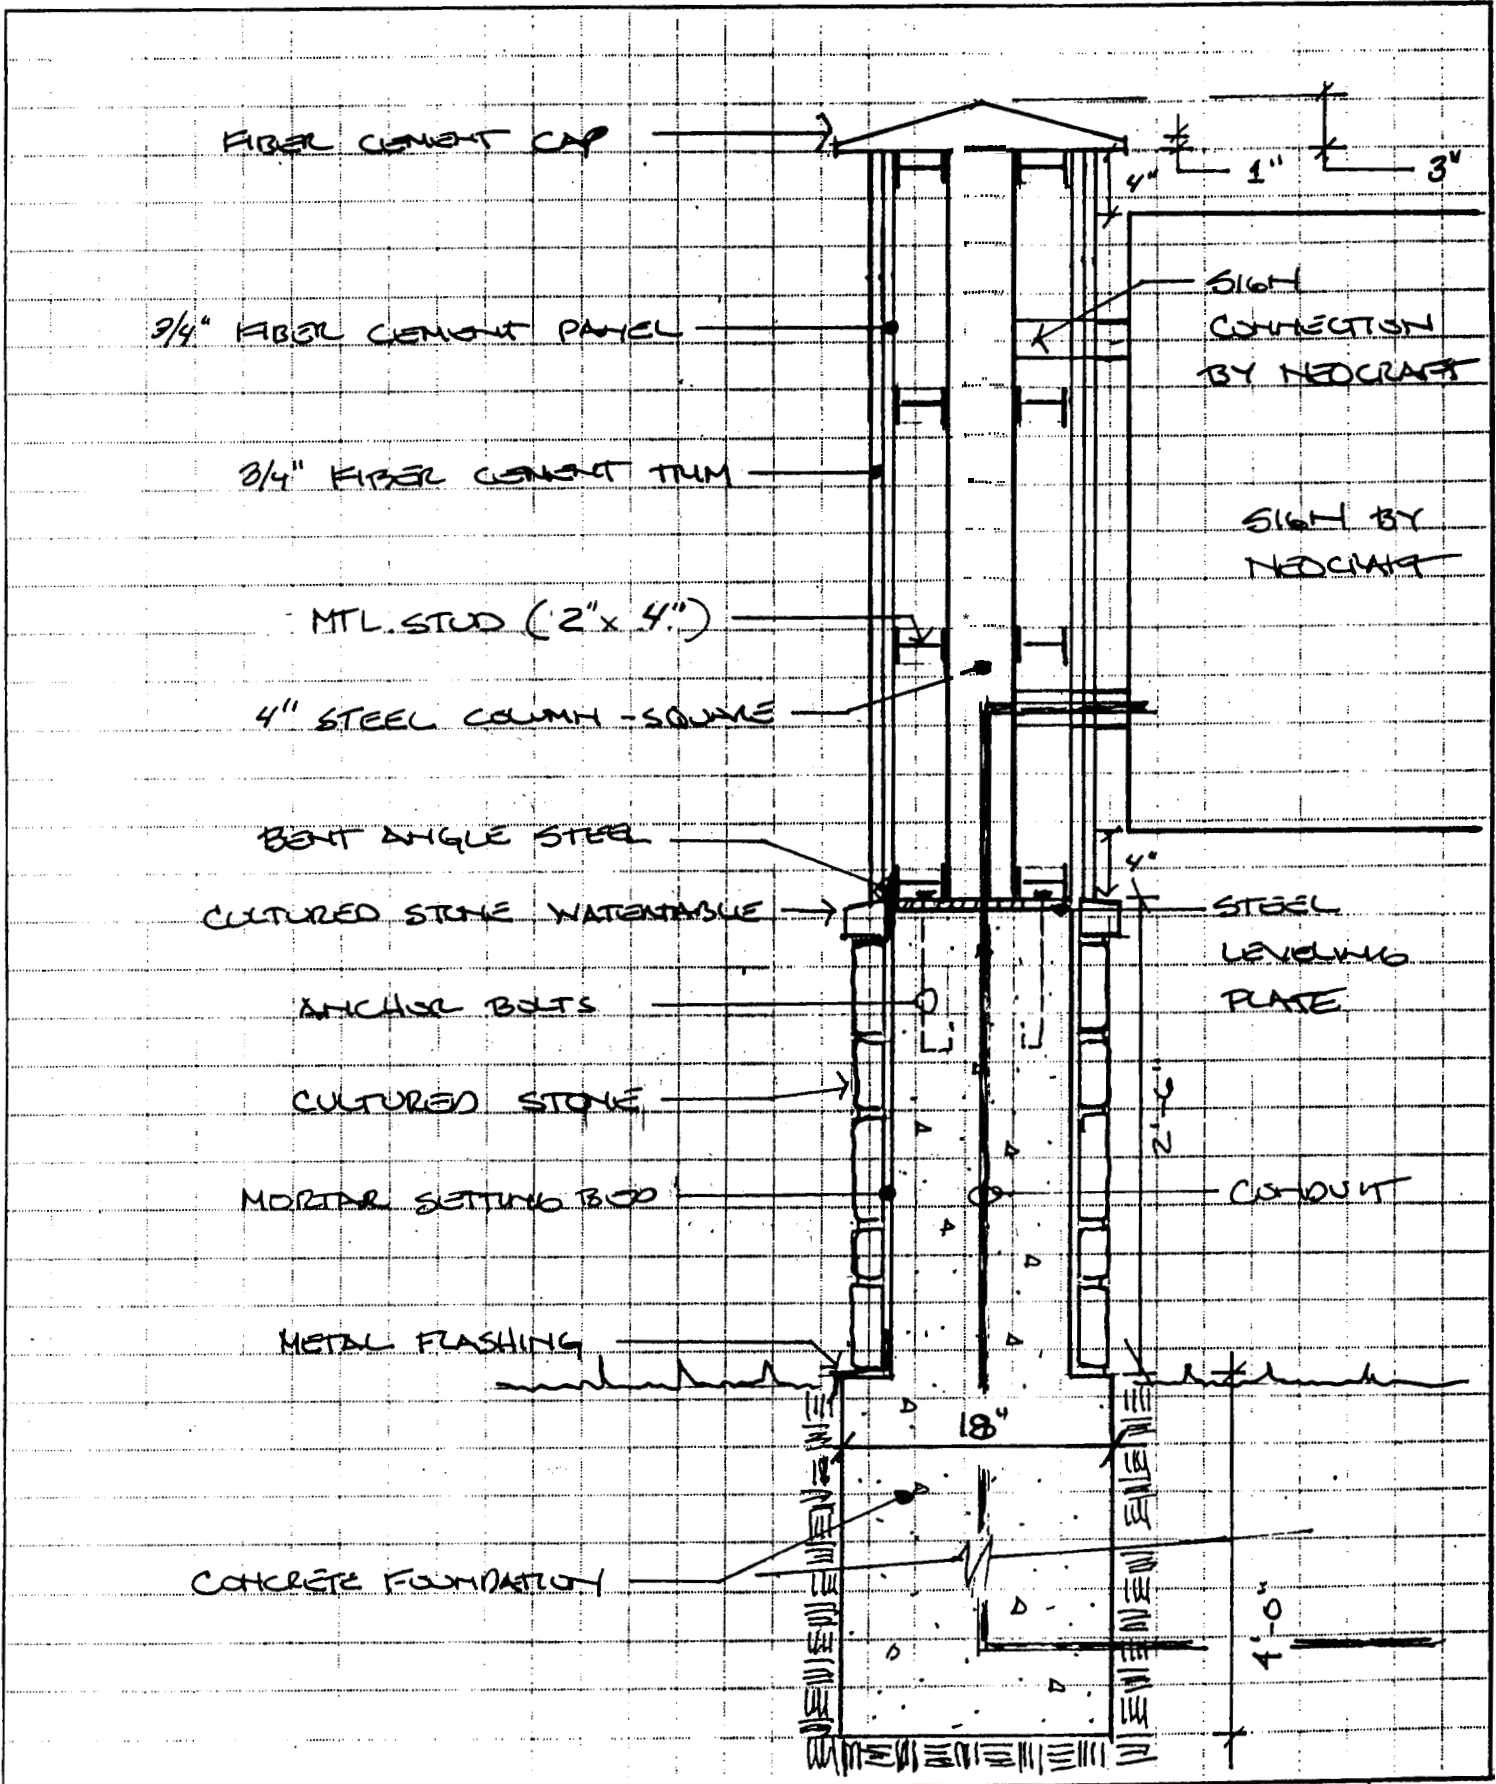 FIBER CEMENT CAP
4"
1"
3"
SIGN
CONNECTION
BY NEOCRAFT
3/4" FIBER CEMENT PANEL
3/4" FIBER CEMENT TRIM
SIGN BY
NEOCRAFT
MTL. STUD (2" x 4")
4" STEEL COLUMN - SQUARE
BENT ANGLE STEEL
4"
CULTURED STONE WATERTABLE
STEEL
LEVELING
PLATE
ANCHOR BOLTS
CULTURED STONE
2'-6"
MORTAR SETTING BED
CONDUIT
METAL FLASHING
18"
CONCRETE FOUNDATION
4'-0"